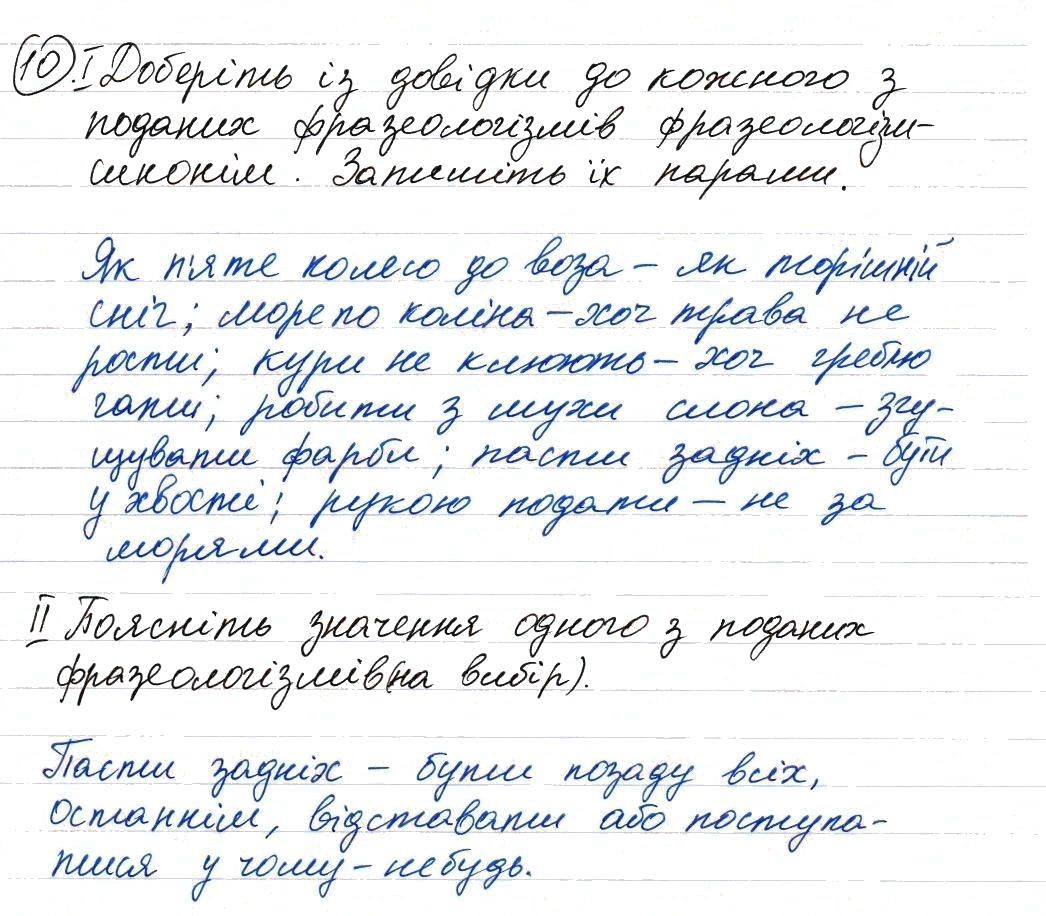 10. I Доберіть із довідки до кожного з
поданих фразеологізмів фразеологізм-
синонім. Запишіть їх парами.
Як п'яте колесо до воза – як торішній
сніг; море по коліна – хоч трава не
рости; кури не клюють – хоч греблю
гати; робити з мухи слона – згу-
щувати фарби; пасти задніх – бути
у хвості; рукою подати – не за
морями.
II Поясніть значення одного з поданих
фразеологізмів (на вибір).
Пасти задніх – бути позаду всіх,
останнім, відставати або поступа-
тися у чому-небудь.